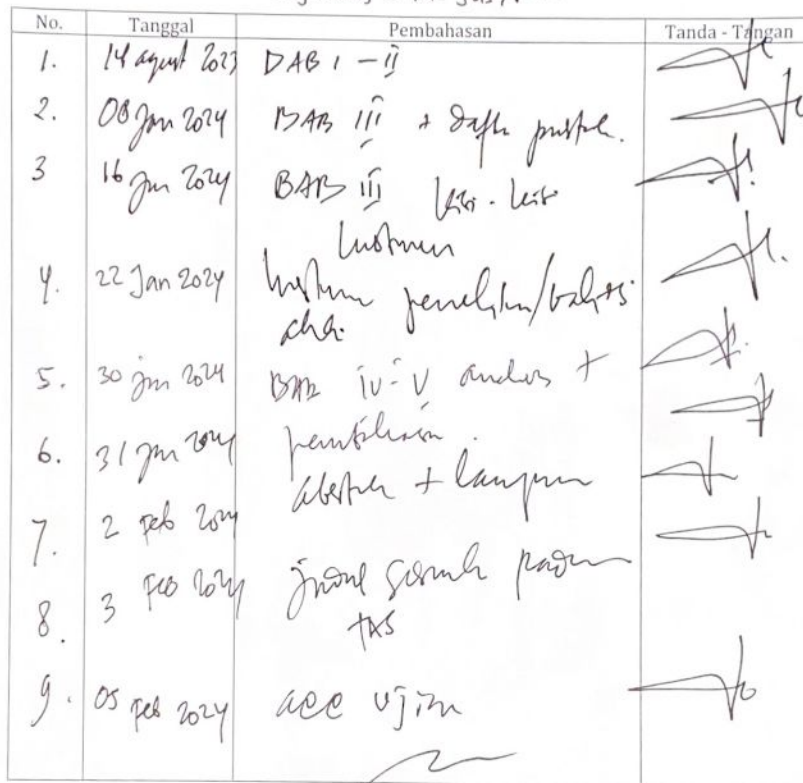 No. Tanggal Pembahasan Tanda - Tangan
1. 14 agust 2023 BAB I - II
2. 08 Jan 2024 BAB III + daftar pustak.
3 16 Jan 2024 BAB III kisi - kisi
Instrumen
4. 22 Jan 2024 Instrumen penelitian/validasi
ahli.
5. 30 jan 2024 BAB IV - V +
6. 31 jan 2024
abstrak + lampiran
7. 2 Feb 2024
8. 3 Feb 2024 judul
TAS
9. 05 Feb 2024 acc ujian